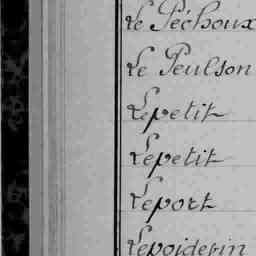 Le Péchoux
Le Peulson
Lepetit
Lepetit
Leport
Lepoiderin